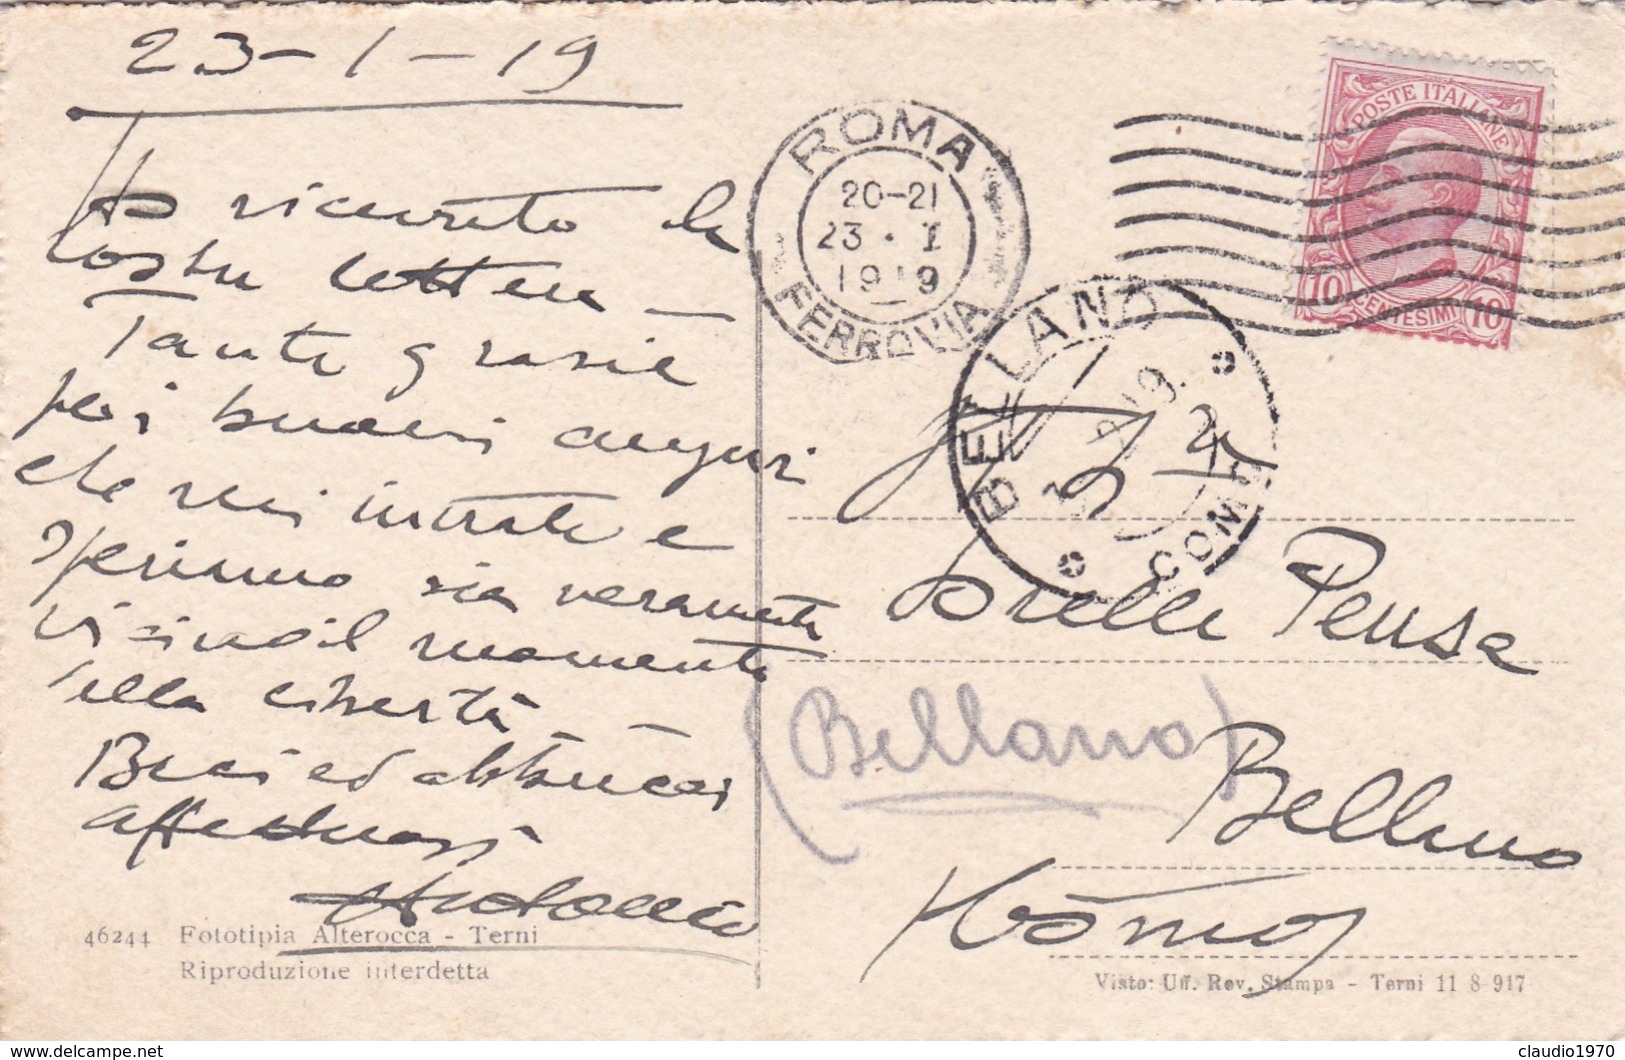 23-1-19
Ho ricevuto la
vostra lettera -
Tante grasie
pei buoni auguri
che mi inviate e
speriamo sia veramente
vicino il momento
della libertà -
Baci ed abbracci
affettuosi
Antonio
46244 Fototipia Alterocca - Terni
Riproduzione interdetta
ROMA
20-21
23 · I
1919
FERROVIA
POSTE ITALIANE
10 CENTESIMI 10
BELLANO
COMO
Sorelle Pensa
(Bellano)
Bellano
(Como)
Visto: Uff. Rev. Stampa - Terni 11 8-917
delcampe.net
claudio1970